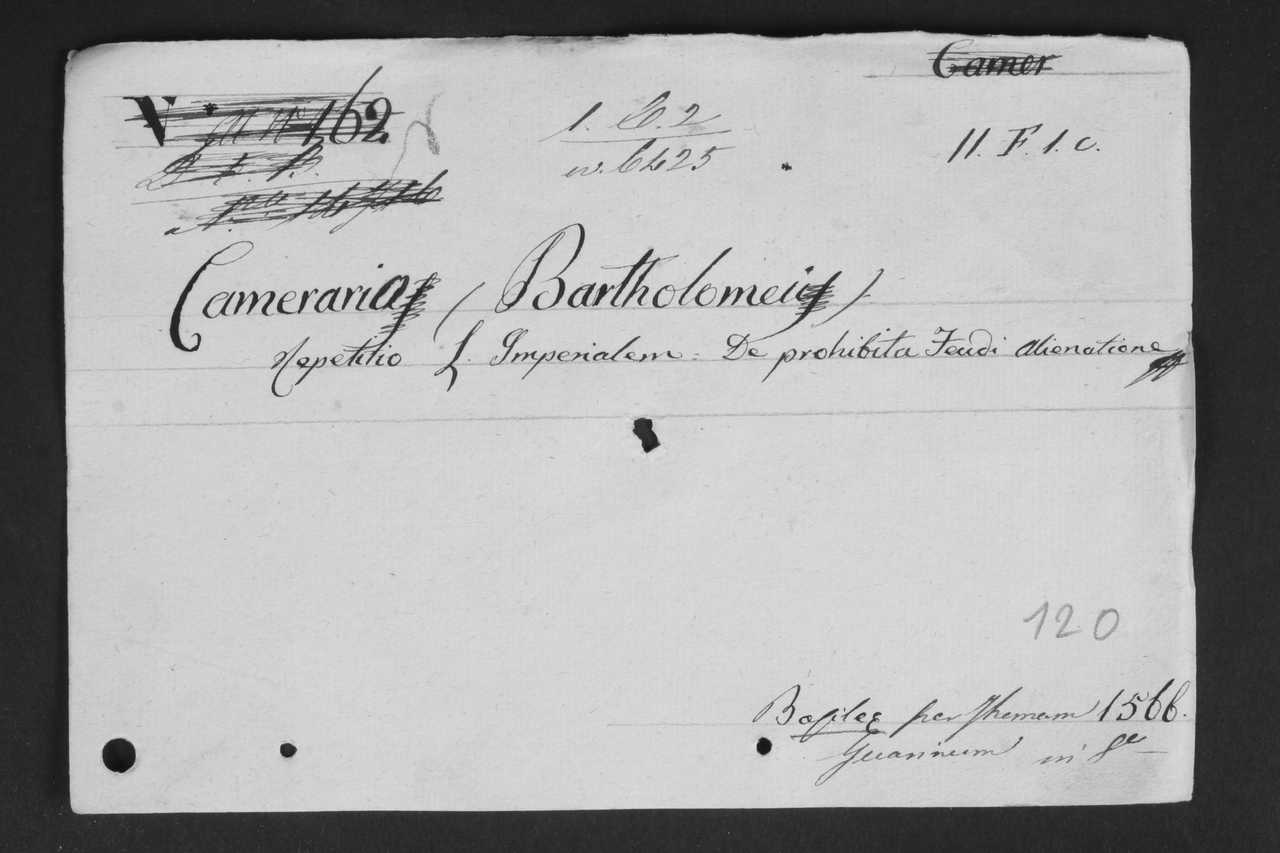 Camer
V. 162
1. C. 2
11. F. 1. c.
w. 6425
Camerarius (Bartholomeius)
Repetitio L. Imperialem: De prohibita Feudi alienatione
120
Basileę per Thomam 1566.
Guarinum in 8º